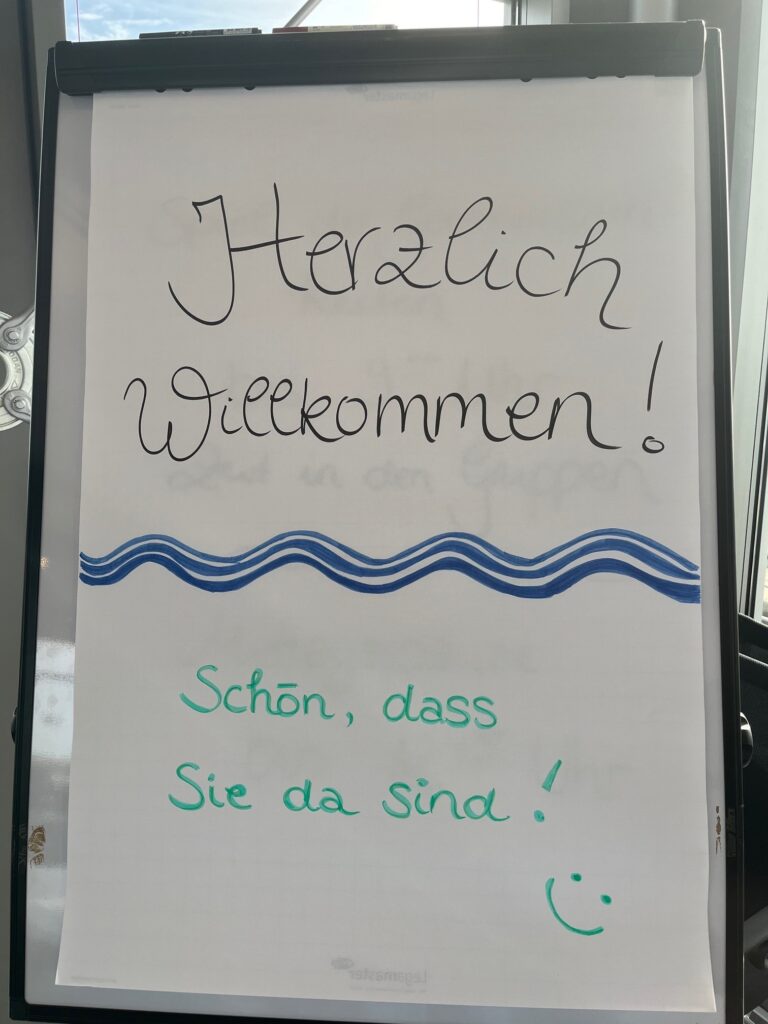 Herzlich
Willkommen!
Schön, dass
Sie da sind!